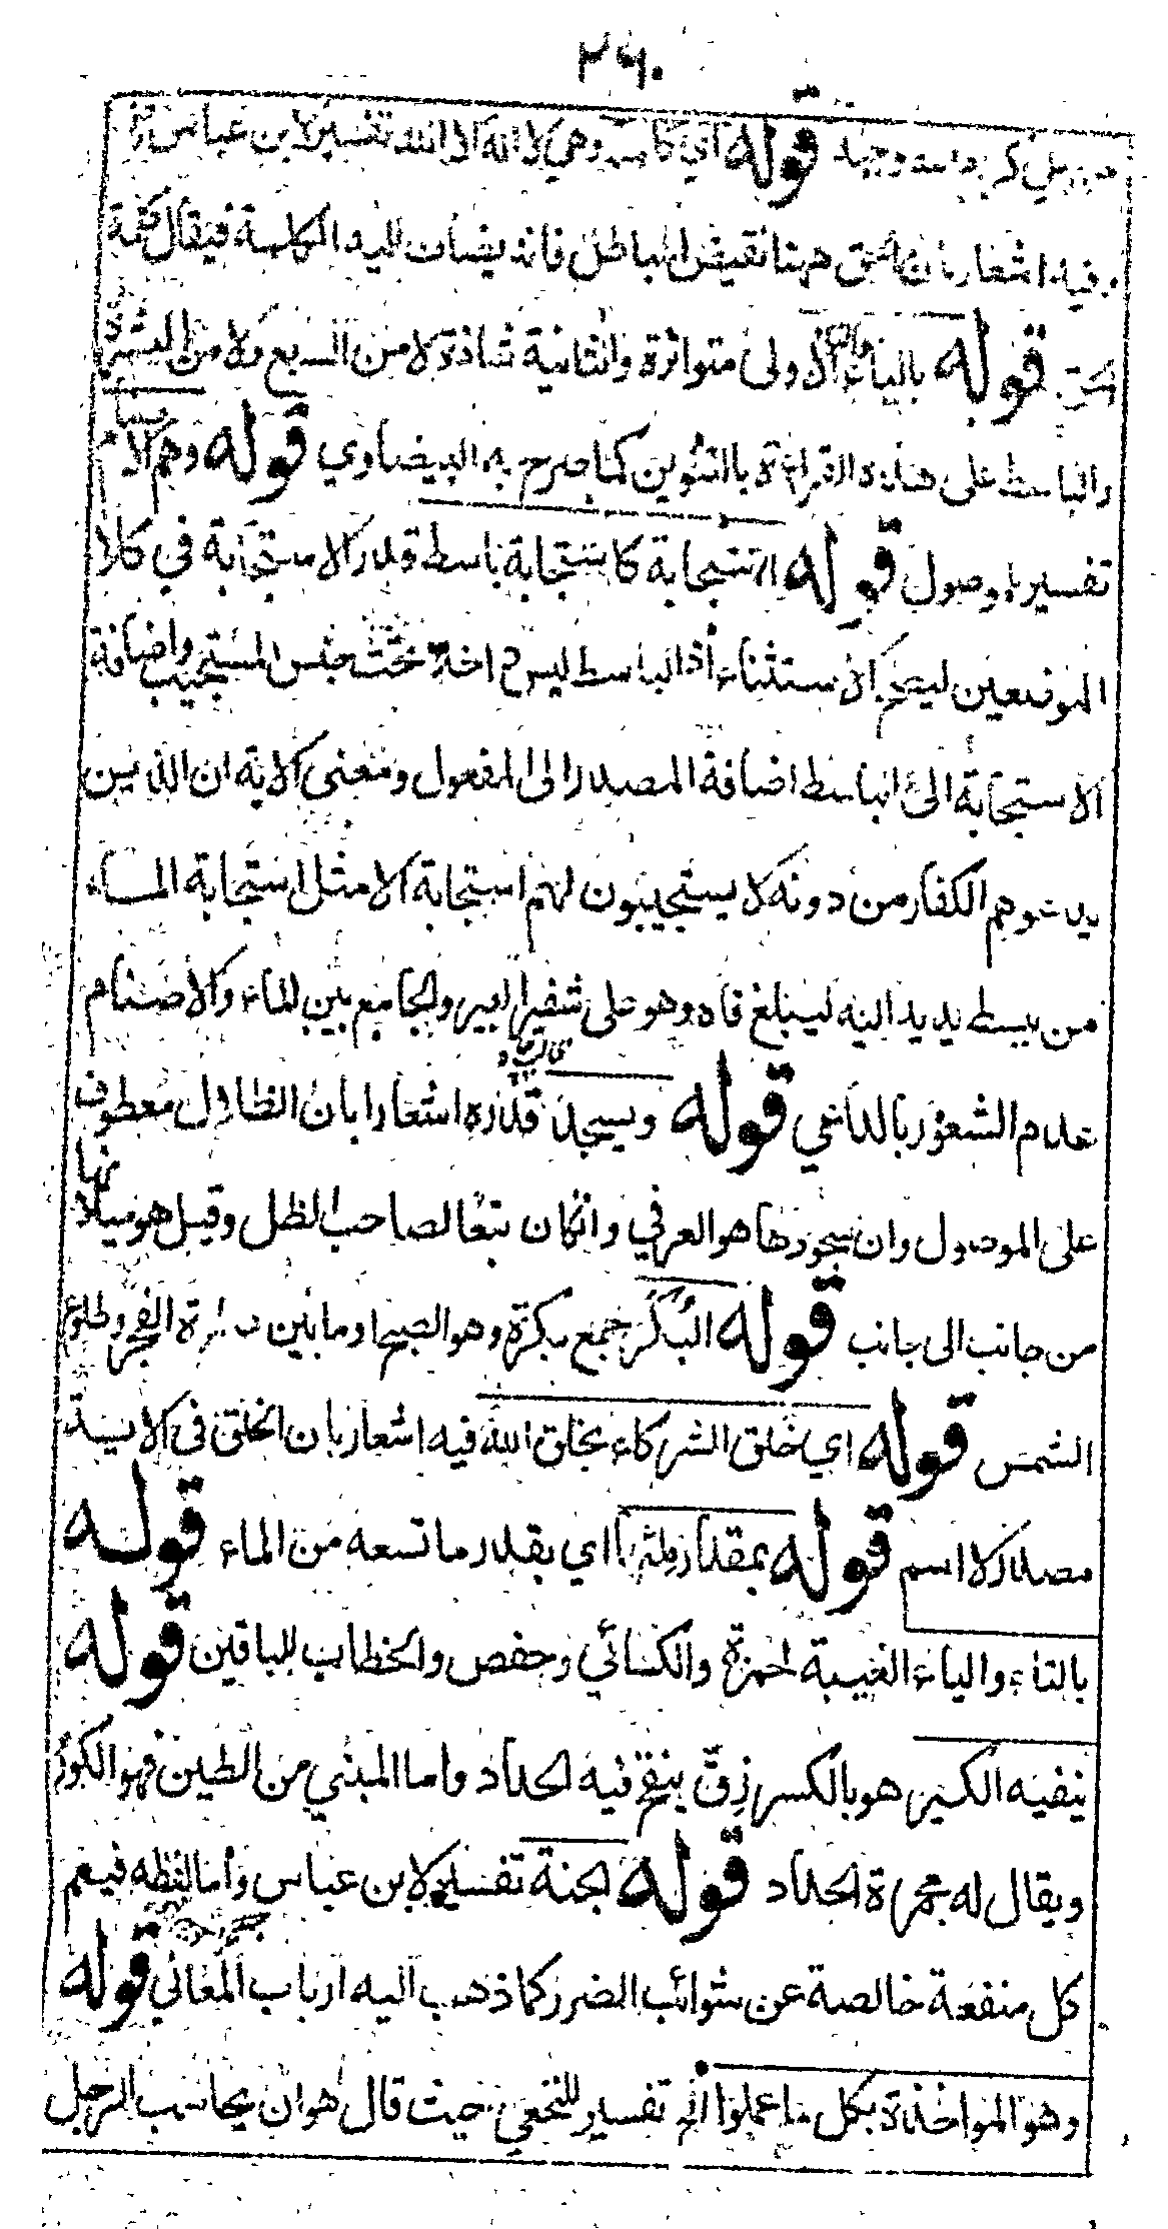 ٢٦٠
قوله اي كلمته وهي لا اله الا الله تفسير لابن عباس
وفيه اشعار بان الحق ههنا نقيض الباطل فانه يضاف اليه الكلمة فيقال كلمة
الحق قوله بالياء والتاء الاولى متواترة والثانية شاذة لا من السبع ولا من العشرة
والباسط على هذه القراءة بالتنوين كما صرح به البيضاوي قوله وهم الاصنام
تفسير للموصول قوله استجابة كاستجابة باسط قدر الاستجابة في كلا
الموضعين ليصح الاستثناء اذ الباسط ليس داخلا تحت جنس المستجيب واضافة
الاستجابة الى الباسط اضافة المصدر الى المفعول ومعنى الاية ان الذين
يدعوهم الكفار من دونه لا يستجيبون لهم استجابة الا مثل استجابة الماء
من يبسط يديه اليه ليبلغ فاه وهو على شفير البير والجامع بين الماء والاصنام
عدم الشعور بالداعي قوله ويسجد قدره اشعارا بان الظلال معطوف
على الموصول وان سجودها هو العرفي وانكان تبعا لصاحب الظل وقيل هو ميلانها
من جانب الى جانب قوله البُكَر جمع بكرة وهو الصبح او ما بين صلوة الفجر وطلوع
الشمس قوله اي خلق الشركاء بخلق الله فيه اشعار بان الخلق في الاية
مصدر لا اسم قوله بمقدار ملئها اي بقدر ما تسعه من الماء قوله
بالتاء والياء الغيبة لحمزة والكسائي وحفص والخطاب للباقين قوله
ينفيه الكير هو بالكسر زقّ ينفخ فيه الحداد واما المبني من الطين فهو الكور
ويقال له مجمرة الحداد قوله الجنة تفسير لابن عباس واما لفظه فيعم
كل منفعة خالصة عن شوائب الضرر كما ذهب اليه ارباب المعاني قوله
وهو المواخذة بكل ما عملوا الخ تفسير للنخعي حيث قال هو ان يحاسب الرجل